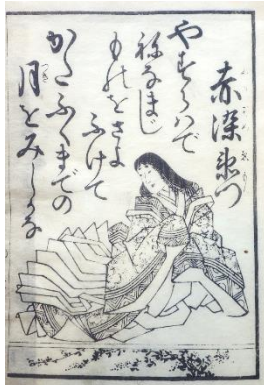 赤染衛門
やすらはで
ねなまし
ものをさよ
ふけて
かたふくまでの
月をみしかな